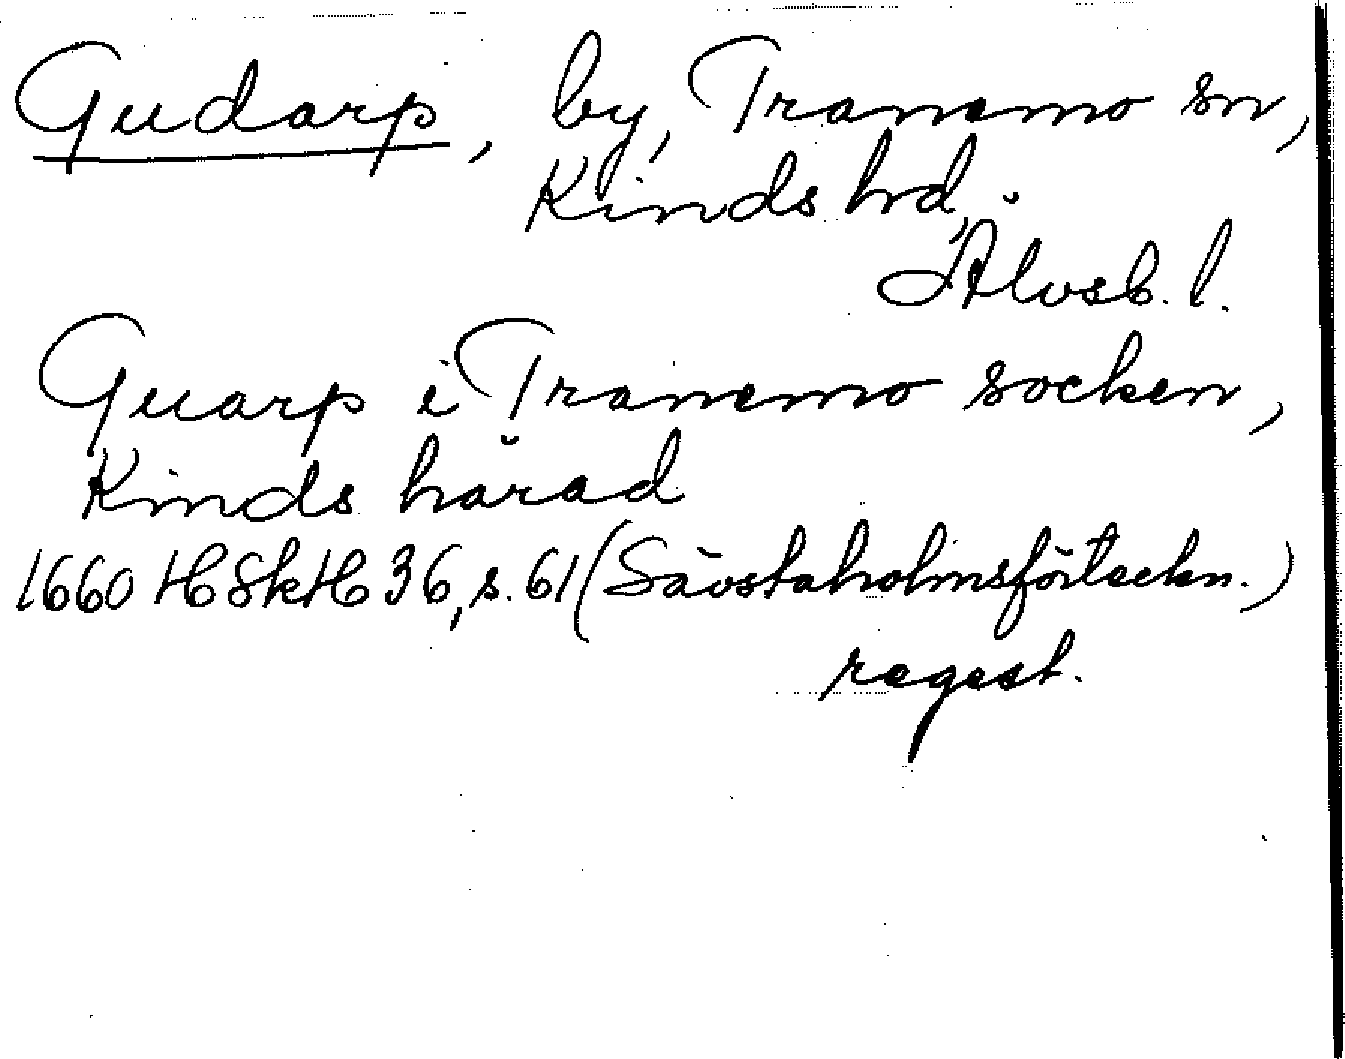 Gudarp, by, Tranemo sn,
Kinds hrd,
Älvsb. l.
Guarp i Tranemo socken,
Kinds härad
1660 HSkH 36, s. 61 (Sävstaholmsförteckn.)
regest.